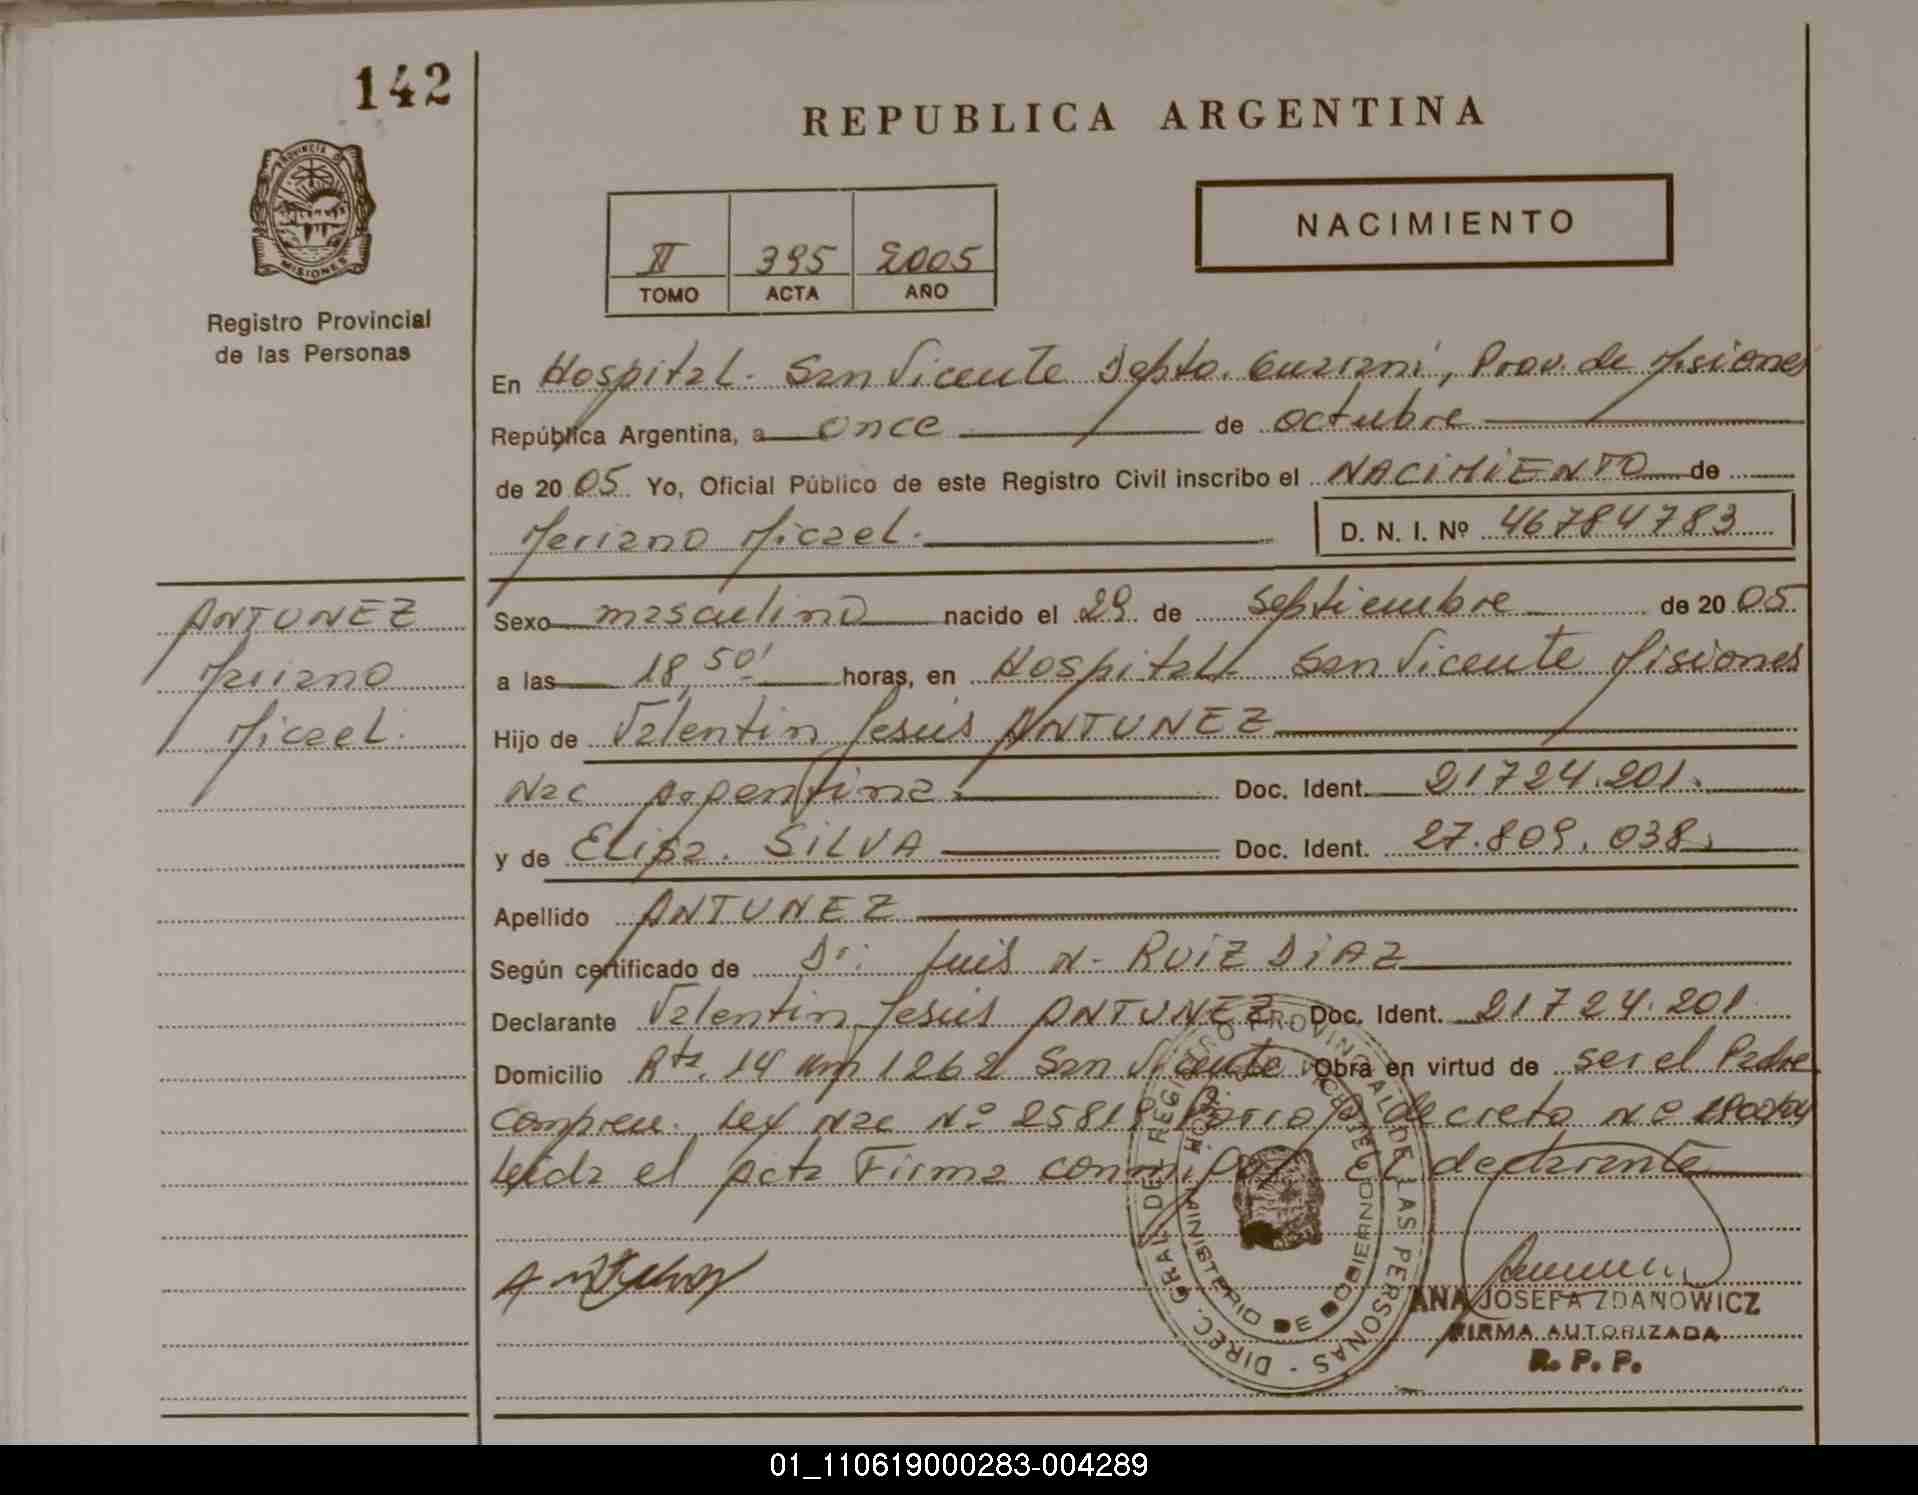 142
REPUBLICA ARGENTINA
PROVINCIA DE MISIONES
Registro Provincial
de las Personas
NACIMIENTO
II 395 2005
TOMO ACTA AÑO
En Hospital. San Vicente Depto. Guarani, Prov. de Misiones
República Argentina, a once de octubre
de 2005 Yo, Oficial Público de este Registro Civil inscribo el NACIMIENTO de
Mariano Micael. D. N. I. Nº 46784783
ANTUNEZ
Mariano
Micael.
Sexo masculino nacido el 29 de septiembre de 2005.
a las 18,50' horas, en Hospital San Vicente Misiones
Hijo de Valentin Jesús ANTUNEZ
Nac Argentina Doc. Ident. 21724.201.
y de Elisa. SILVA Doc. Ident. 27.809.038.
Apellido ANTUNEZ
Según certificado de Dr: Luis N. RUIZ DIAZ
Declarante Valentin Jesús ANTUNEZ Doc. Ident. 21724.201.
Domicilio Rta. 14 km 1262 San Vicente Obra en virtud de ser el Padre
Ley Nac Nº decreto Nº
Leida el Acta Firma conmigo El declarante
DIREC. GRAL. DEL REGISTRO PROVINCIAL DE LAS PERSONAS
MINISTERIO DE GOBIERNO
ANA JOSEFA ZDANOWICZ
FIRMA AUTORIZADA
R. P. P.
01_110619000283-004289